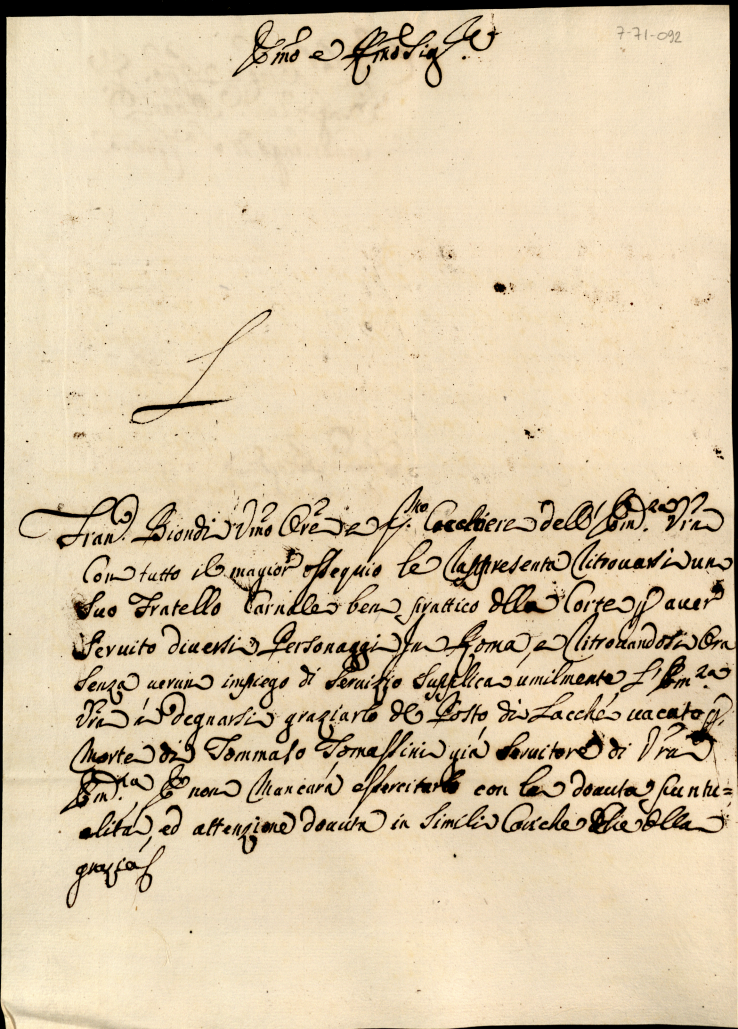 7-71-092
Emo e Rmo Sig.re
Fran.co Biondi Umo Ore e s.mo Cocchiere dell' Em.za Vra
Con tutto il magior ossequio le rappresenta ritrovarsi un
Suo Fratello Carnale ben prattico della Corte p aver
Servito diversi Personaggi in Roma, e ritrovandosi Ora
Senza verun impiego di Servizio Supplica umilmente L' Em.za
Vra à degnarsi graziarlo del Posto di Lacchè vacato p.
Morte di Tommaso Tomassini già Servitore di Vra
Em.za, E non Mancarà essercitarlo con la dovuta puntu=
alità, ed attenzione dovuta in Simili Cariche Che della
grazia